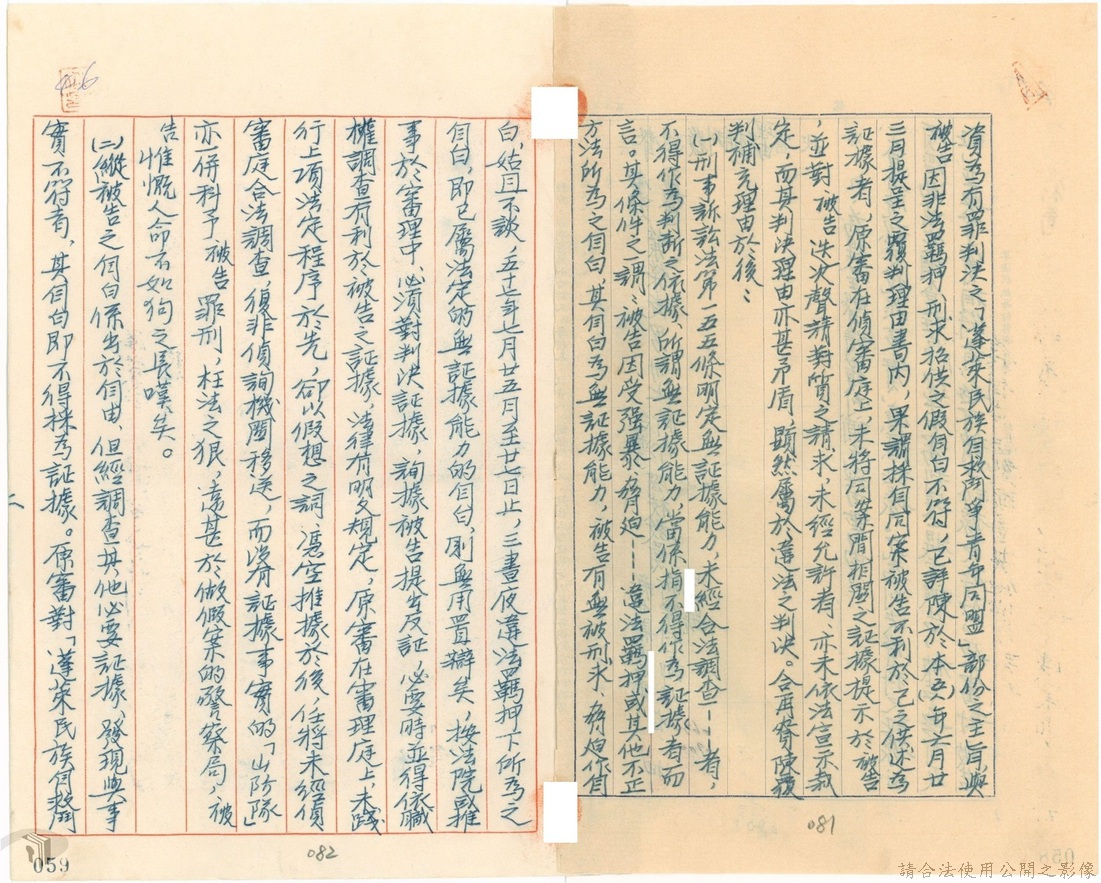 資為有罪判決之「蓬萊民族自救鬥爭青年同盟」部份之主旨與
被告因非法羈押、刑求招供之假自白不符，已詳陳於本(五)年六月廿
三日提呈之覆判理由書內，果謂採自同案被告不利於己之供述為
証據者，原審在偵審庭上，未將同案間相關之証據提示於被告
，並對被告迭次聲請對質之請求，未經允許者，亦未依法宣示裁
定，而其判決理由亦甚矛盾，顯然屬於違法之判決。合再膺陳覆
判補充理由於後：
(一)刑事訴訟法第一五五條明定無証據能力，未經合法調查——者，
不得作為判斷之依據、所謂無証據能力，當係指不得作為証據者而
言。其條件之一謂：被告因受强暴、脅迫——違法羈押或其他不正
方法所為之自白，其自白為無証據能力，被告有無被刑求、脅迫作自
白，姑且不談，五六年七月廿五日至廿七日止，三晝夜違法羈押下所為之
自白，即已屬法定的無証據能力的自白，則無用置辯矣，按法院或推
事於審理中，必須對判決証據，詢據被告提出反証，必要時並得依職
權調查有利於被告之証據，法律有明文規定，原審在審理庭上，未踐
行上項法定程序於先，卻以假想之詞，憑空推據於後，任將未經偵
審庭合法調查，復非偵詢機關移送，而沒有証據事實的「山防隊」
亦一併科予被告罪刑，枉法之狠，遠甚於做假案的警察局，被
告惟慨人命不如狗之長嘆矣。
(二)縱被告之自白係出於自由，但經調查其他必要証據，發現與事
實不符者，其自白即不得採為証據。原審對「蓬萊民族自救鬥
二
081
082
059
請合法使用公開之影像